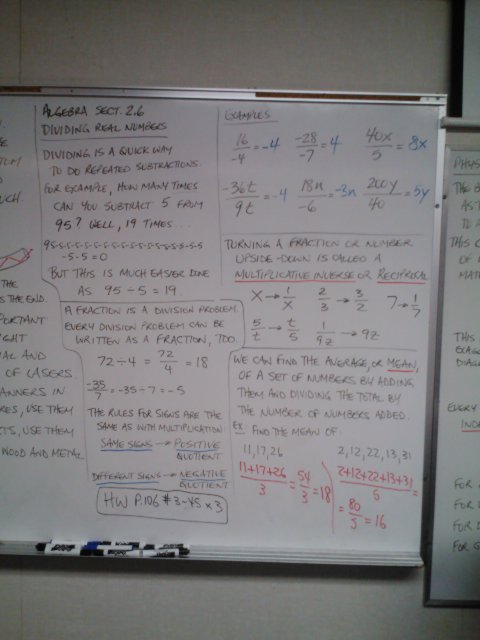 ALGEBRA SECT. 2.6
DIVIDING REAL NUMBERS
DIVIDING IS A QUICK WAY
TO DO REPEATED SUBTRACTIONS.
FOR EXAMPLE, HOW MANY TIMES
CAN YOU SUBTRACT 5 FROM
95? WELL, 19 TIMES...
95-5-5-5-5-5-5-5-5-5-5-5-5-5-5-5-5-5
-5-5=0
BUT THIS IS MUCH EASIER DONE
AS 95÷5=19.
A FRACTION IS A DIVISION PROBLEM.
EVERY DIVISION PROBLEM CAN BE
WRITTEN AS A FRACTION, TOO.
72÷4 = 72/4 = 18
-35/7 = -35÷7 = -5
THE RULES FOR SIGNS ARE THE
SAME AS WITH MULTIPLICATION:
SAME SIGNS → POSITIVE
QUOTIENT
DIFFERENT SIGNS → NEGATIVE
QUOTIENT
HW P.106 #3-45 x3
EXAMPLES
16/-4 = -4 -28/-7 = 4 40x/5 = 8x
-36t/9t = -4 18n/-6 = -3n 200y/40 = 5y
TURNING A FRACTION OR NUMBER
UPSIDE-DOWN IS CALLED A
MULTIPLICATIVE INVERSE OR RECIPROCAL
X → 1/X 2/3 → 3/2 7 → 1/7
5/t → t/5 1/9z → 9z
WE CAN FIND THE AVERAGE, OR MEAN,
OF A SET OF NUMBERS BY ADDING
THEM AND DIVIDING THE TOTAL BY
THE NUMBER OF NUMBERS ADDED.
EX: FIND THE MEAN OF:
11,17,26 2,12,22,13,31
11+17+26/3 = 54/3 = 18 2+12+22+13+31/5 =
= 80/5 = 16
THE
S THE END.
PORTANT
IGHT
AL AND
OF LASERS.
ANNERS IN
RES, USE THEM
TS, USE THEM
WOOD AND METAL
PHYS
THE
THIS
MAT
THIS
DIAG
EVERY
FOR
FOR
FOR
FOR